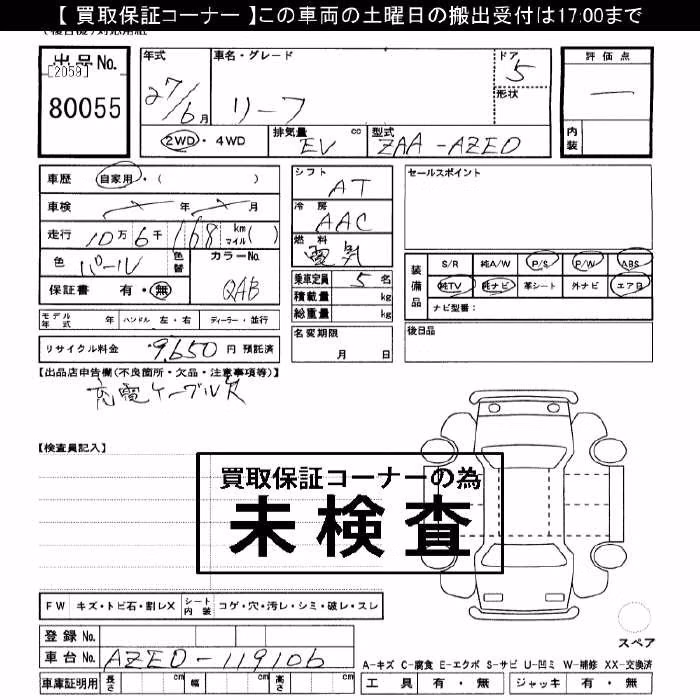 【 買取保証コーナー 】この車両の土曜日の搬出受付は17:00まで
出品No.
[2059]
80055
年式
27/6月
車名・グレード
リーフ
ドア
5
形状
評価点
内装
2WD・4WD
排気量 EV cc
型式 ZAA-AZE0
車歴 自家用・( )
車検 年 月
走行 10万6千168 km マイル( )
色 パール
色替
カラーNo. QAB
保証書 有・無
シフト AT
冷房 AAC
燃料 電気
乗車定員 5名
積載量 kg
総重量 kg
セールスポイント
装備品
S/R 純A/W P/S P/W ABS
純TV 純ナビ 革シート 外ナビ エアB
ナビ型番:
モデル年式 年 ハンドル 左・右 ディーラー・並行
名変期限 月 日
後日品
リサイクル料金 9,650 円 預託済
【出品店申告欄(不良箇所・欠品・注意事項等)】
充電ケーブル欠
【検査員記入】
買取保証コーナーの為
未検査
FW キズ・トビ石・割レX シート内装 コゲ・穴・汚レ・シミ・破レ・スレ
スペア
登録No.
車台No. AZE0-119106
車庫証明用 長さ cm 幅 cm 高さ cm
A-キズ C-腐食 E-エクボ S-サビ U-凹ミ W-補修 XX-交換済
工具 有・無 ジャッキ 有・無